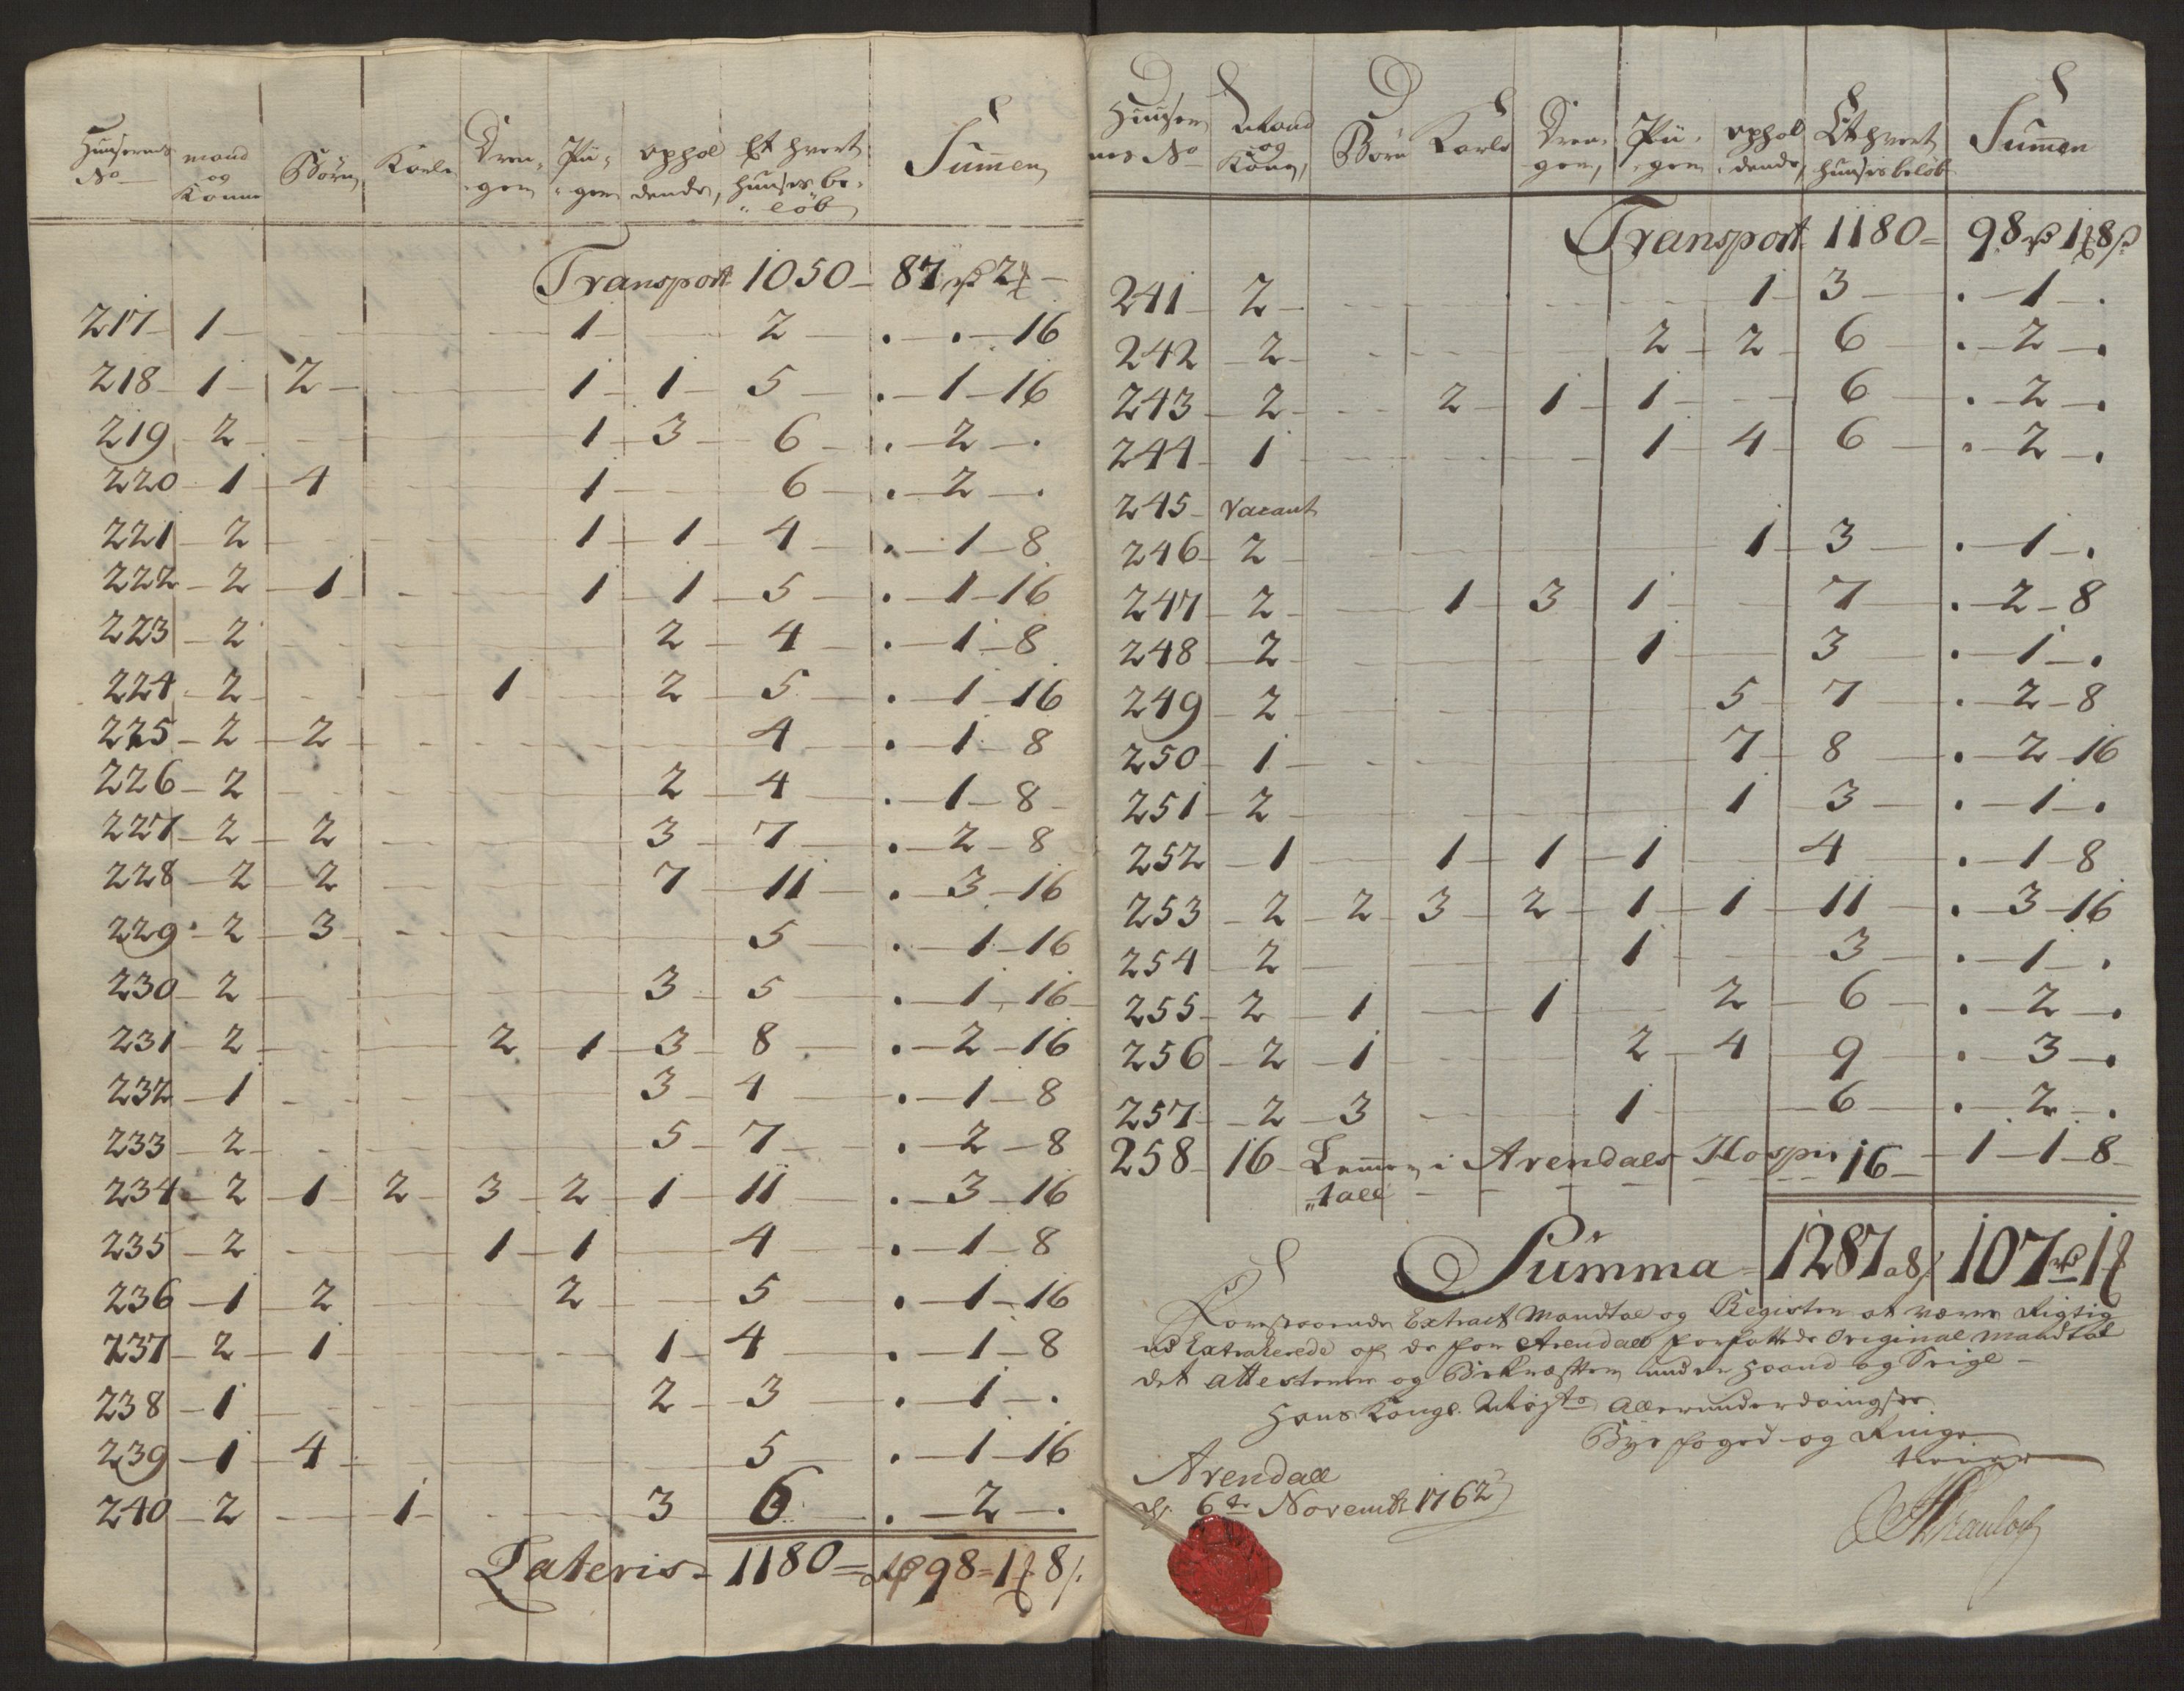 Huusernes No | Mand og Konne | Börn | Karle | Drenge | Piger | ophol dende, | Et hvert huuses be löb | Summen
Transport 1050 – 87 rd 2 ort –
217 – 1 – 1 – 2 – . – . – 16
218 – 1 – 2 – 1 – 1 – 5 – . – 1 – 16
219 – 2 – 1 – 3 – 6 – . – 2 – .
220 – 1 – 4 – 1 – 6 – . – 2 – .
221 – 2 – 1 – 1 – 4 – . – 1 – 8
222 – 2 – 1 – 1 – 1 – 5 – . – 1 – 16
223 – 2 – 2 – 4 – . – 1 – 8
224 – 2 – 1 – 2 – 5 – . – 1 – 16
225 – 2 – 2 – 4 – . – 1 – 8
226 – 2 – 2 – 4 – . – 1 – 8
227 – 2 – 2 – 3 – 7 – . – 2 – 8
228 – 2 – 2 – 7 – 11 – . – 3 – 16
229 – 2 – 3 – 5 – . – 1 – 16
230 – 2 – 3 – 5 – . – 1 – 16
231 – 2 – 2 – 1 – 3 – 8 – . – 2 – 16
232 – 1 – 3 – 4 – . – 1 – 8
233 – 2 – 5 – 7 – . – 2 – 8
234 – 2 – 1 – 2 – 3 – 2 – 1 – 11 – . – 3 – 16
235 – 2 – 1 – 1 – 4 – . – 1 – 8
236 – 1 – 2 – 2 – 5 – . – 1 – 16
237 – 2 – 1 – 1 – 4 – . – 1 – 8
238 – 1 – 2 – 3 – . – 1 – .
239 – 1 – 4 – 5 – . – 1 – 16
240 – 2 – 1 – 3 – 6 – . – 2 – .
Lateris – 1180 = rd 98 = 1 ort 8 s
Huuser nes No | Mand og Kone, | Börn | Karle | Dren- gen, | Pii- gen | ophol dende, | Et hvert huuses belöb | Summen
Transport 1180 = 98 rd 1 ort 8 s
241 – 2 – 1 – 3 – . – 1 – .
242 – 2 – 2 – 2 – 6 – . – 2 – .
243 – 2 – 2 – 1 – 1 – 6 – . – 2 – .
244 – 1 – 1 – 4 – 6 – . – 2 – .
245 – Vacant
246 – 2 – 1 – 3 – . – 1 – .
247 – 2 – 1 – 3 – 1 – 7 – . – 2 – 8
248 – 2 – 1 – 3 – . – 1 – .
249 – 2 – 5 – 7 – . – 2 – 8
250 – 1 – 7 – 8 – . – 2 – 16
251 – 2 – 1 – 3 – . – 1 – .
252 – 1 – 1 – 1 – 1 – 4 – . – 1 – 8
253 – 2 – 2 – 3 – 2 – 1 – 1 – 11 – . – 3 – 16
254 – 2 – 1 – 3 – . – 1 – .
255 – 2 – 1 – 1 – 2 – 6 – . – 2 – .
256 – 2 – 1 – 2 – 4 – 9 – . – 3 – .
257 – 2 – 3 – 1 – 6 – . – 2 – .
258 – 16 – Lemmer i Arendals Hospi 16 – 1 – 1 – 8
"tall
Summa = 1287 a 8 s 107 rd 1 ort
Forestaaende Extract Mandtal og Register at være Rigtig
ud Extraherede af de for Arendall forfattede Original Mandtal
det attesterer og Bekræfter under Haand og Seigl
Hans Kongl. Majts Allerunderdanigste
Bye foged og
Arendall
d. 6te Novembr 1762